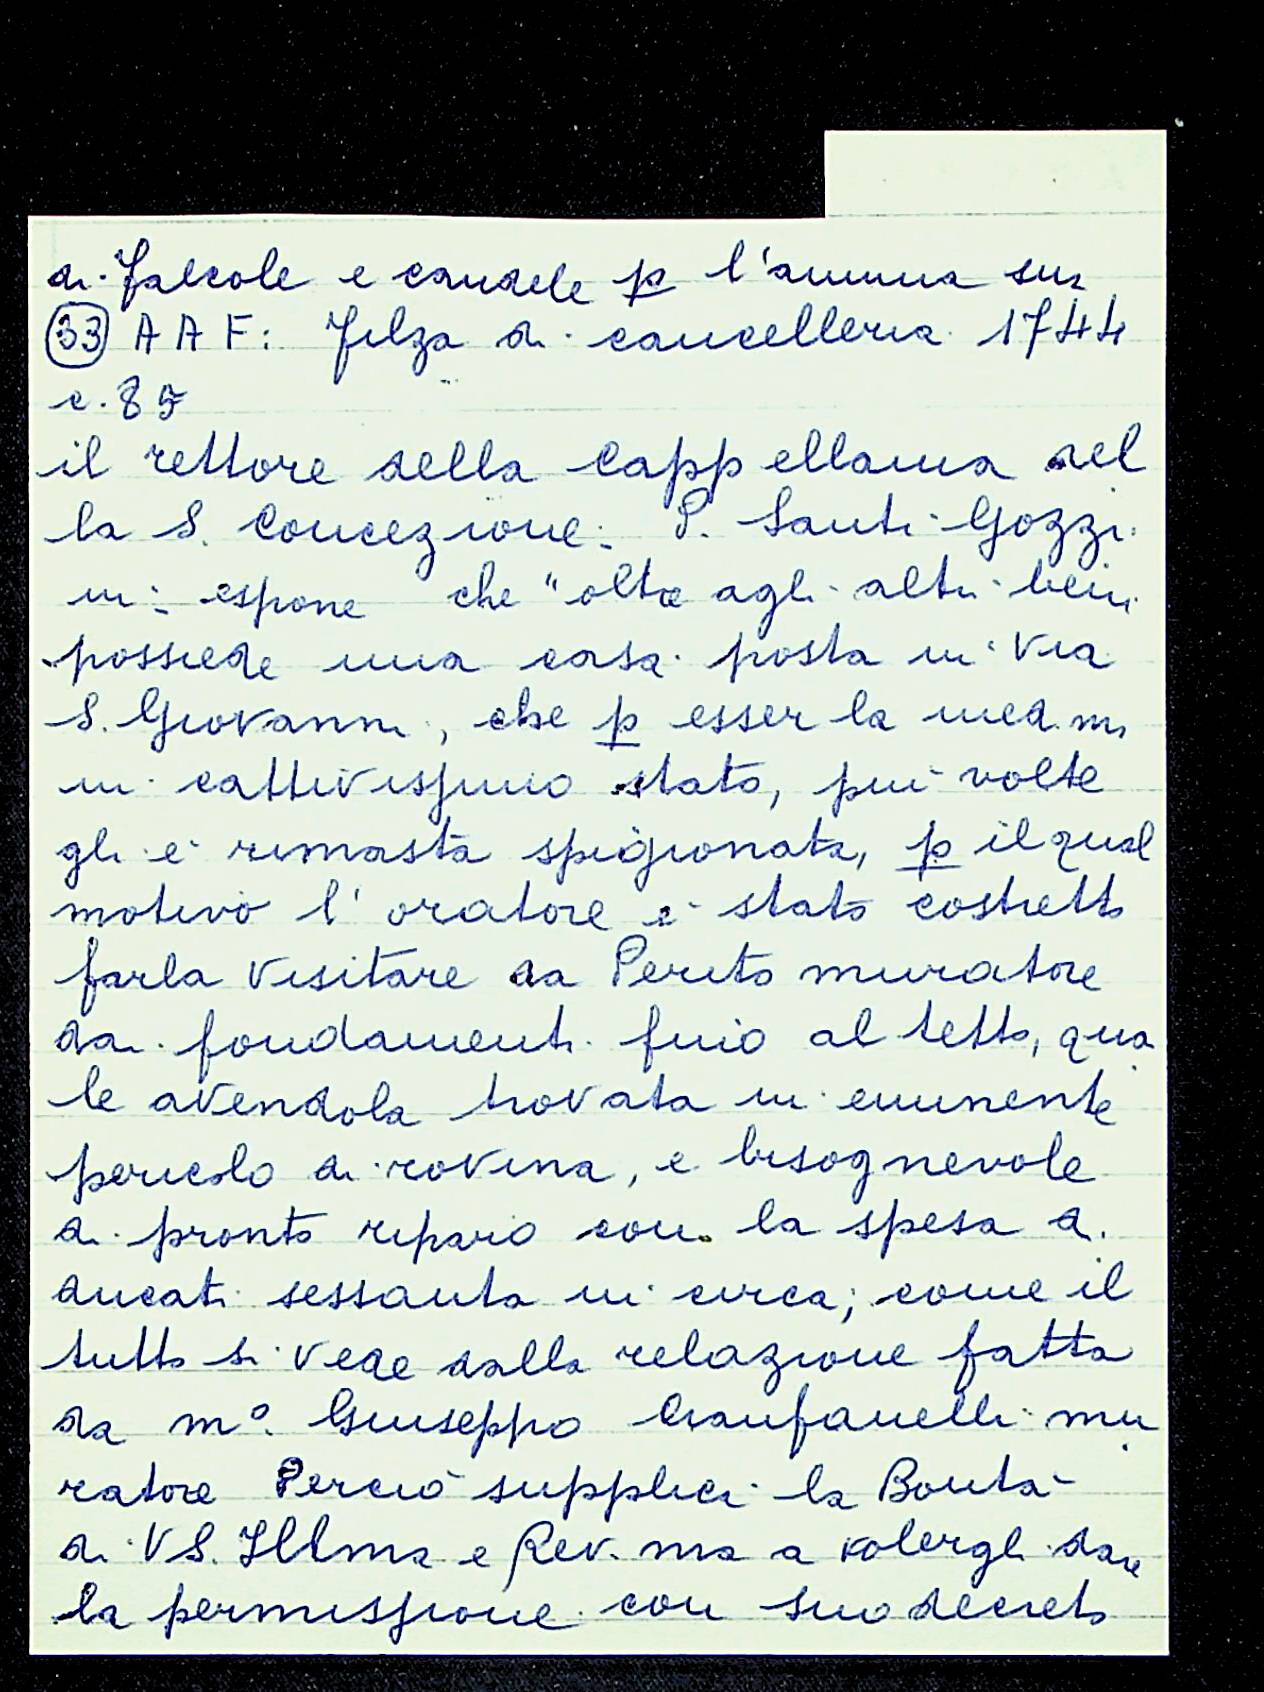 di falcole e candele p l'anima sua
33 A A F: Filza di cancelleria 1744
c. 85
il rettore della Cappellania del
la S. Concezione: P. Santi Gozzi
mi espone che "oltre agli altri beni
possiede una casa posta in Via
S. Giovanni, che p esser la med.ma
in cattivissimo stato, più volte
gli è rimasta spigionata, p il qual
motivo l'oratore è stato costretto
farla visitare da Perito muratore
dai fondamenti fino al tetto, qua
le avendola trovata in eminente
pericolo di rovina, e bisognevole
di pronto riparo con la spesa di
ducati sessanta in circa; come il
tutto si vede dalla relazione fatta
da m°. Giuseppo Cianfanelli mu
ratore Perciò supplica la Bontà
di VS. Illma e Rev.ma a volergli dare
la permissione con suo decreto